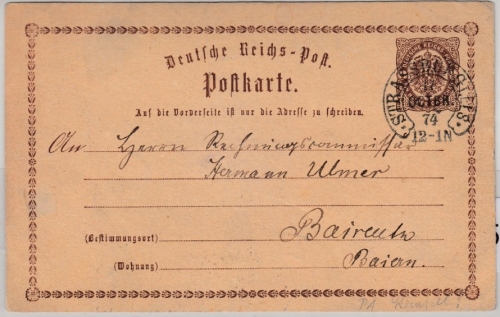 Deutsche Reichs-Post.
Postkarte.
Auf die Vorderseite ist nur die Adresse zu schreiben.
OCTBR
74
12-1N
An Herrn Rechnungscommissär
Hermann Ulmer
Baireuth
(Bestimmungsort)
Baiern.
(Wohnung)